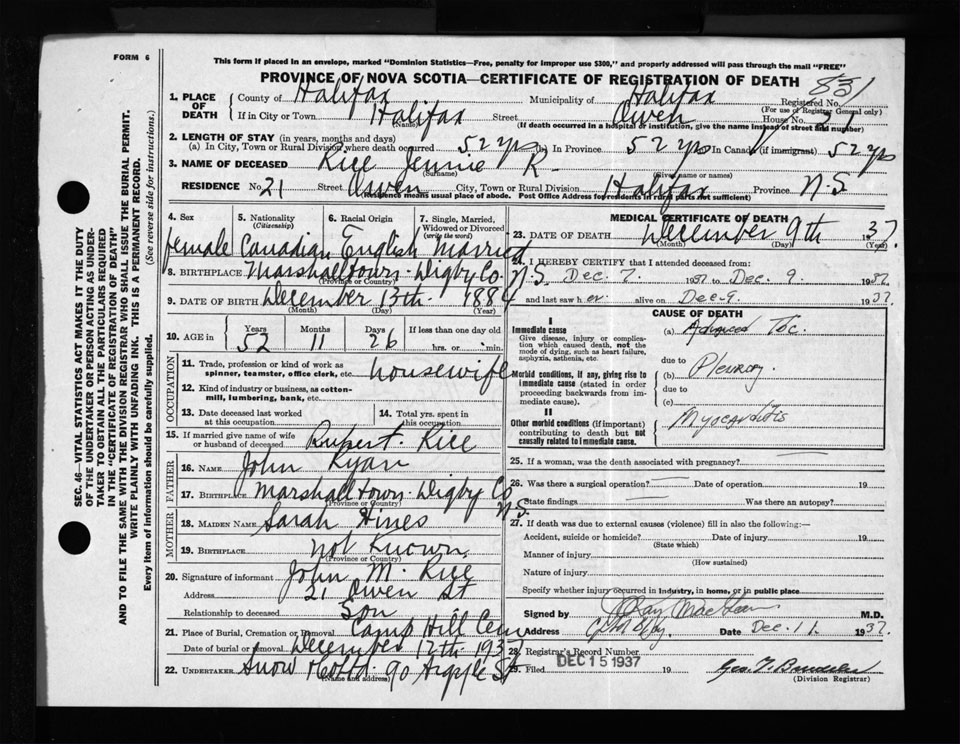 FORM 6
This form if placed in an envelope, marked "Dominion Statistics—Free, penalty for improper use $300," and properly addressed will pass through the mail "FREE"
PROVINCE OF NOVA SCOTIA—CERTIFICATE OF REGISTRATION OF DEATH
851
1. PLACE OF DEATH
County of Halifax Municipality of Halifax Registered No.
(For use of Registrar General only)
If in City or Town Halifax Street Owen House No. 21
(Name) (If death occurred in a hospital or institution, give the name instead of street and number)
2. LENGTH OF STAY (in years, months and days)
(a) In City, Town or Rural Division where death occurred 52 yrs (b) In Province 52 yrs In Canada (if immigrant) 52 yrs
3. NAME OF DECEASED Rice Jennie R.
(Surname) (Given name or names)
RESIDENCE No. 21 Street Owen City, Town or Rural Division Halifax Province N.S.
(Residence means usual place of abode. Post Office Address for residents in rural parts not sufficient)
4. Sex
female
5. Nationality (Citizenship)
Canadian
6. Racial Origin
English
7. Single, Married, Widowed or Divorced (write the word)
Married
8. BIRTHPLACE Marshalltown Digby Co. N.S.
(Province or Country)
9. DATE OF BIRTH December 13th 1884
(Month) (Day) (Year)
10. AGE in
Years 52
Months 11
Days 26
If less than one day old
hrs. or min.
OCCUPATION
11. Trade, profession or kind of work as spinner, teamster, office clerk, etc. housewife
12. Kind of industry or business, as cotton-mill, lumbering, bank, etc.
13. Date deceased last worked at this occupation
14. Total yrs. spent in this occupation
15. If married give name of wife or husband of deceased Rupert Rice
FATHER
16. NAME John Ryan
17. BIRTHPLACE Marshalltown Digby Co N.S.
(Province or Country)
MOTHER
18. MAIDEN NAME Sarah Hines
19. BIRTHPLACE not known
(Province or Country)
20. Signature of informant John M. Rice
Address 21 Owen St
Relationship to deceased Son
21. Place of Burial, Cremation or Removal Camp Hill Cem
Date of burial or removal December 12th 1937
22. UNDERTAKER Snow & Co Ltd 90 Argyle St
(Name and address)
MEDICAL CERTIFICATE OF DEATH
23. DATE OF DEATH December 9th 1937.
(Month) (Day) (Year)
24. I HEREBY CERTIFY that I attended deceased from:
Dec. 7. 1937 to Dec. 9. 1937
and last saw her alive on Dec. 9. 1937.
CAUSE OF DEATH
I
Immediate cause
Give disease, injury or complication which caused death, not the mode of dying, such as heart failure, asphyxia, asthenia, etc.
(a) Advanced Tbc.
due to
Morbid conditions, if any, giving rise to immediate cause (stated in order proceeding backwards from immediate cause).
(b) Pleurisy.
due to
(c)
II
Other morbid conditions (if important) contributing to death but not causally related to immediate cause.
Myocarditis
25. If a woman, was the death associated with pregnancy?
26. Was there a surgical operation? Date of operation 19
State findings Was there an autopsy?
27. If death was due to external causes (violence) fill in also the following:—
Accident, suicide or homicide? Date of injury 19
(State which)
Manner of injury
(How sustained)
Nature of injury
Specify whether injury occurred in industry, in home, or in public place
Signed by M.D.
Address Date Dec. 11. 1937.
28. Registrar's Record Number
29. Filed DEC 15 1937
(Division Registrar)
SEC. 46—VITAL STATISTICS ACT MAKES IT THE DUTY
OF THE UNDERTAKER OR PERSON ACTING AS UNDER-
TAKER TO OBTAIN ALL THE PARTICULARS REQUIRED
IN THE "CERTIFICATE OF REGISTRATION OF DEATH"
AND TO FILE THE SAME WITH THE DIVISION REGISTRAR WHO SHALL ISSUE THE BURIAL PERMIT.
WRITE PLAINLY WITH UNFADING INK. THIS IS A PERMANENT RECORD.
Every item of information should be carefully supplied. (See reverse side for instructions.)